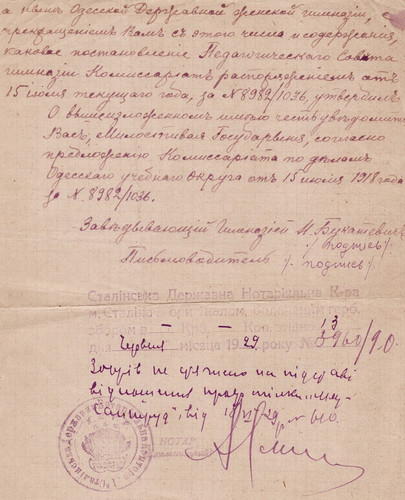 а именъ Одесской Державной женской гимназіи, съ
прекращеніемъ Вамъ съ этого числа и содержанія,
каковое постановленіе Педагогическаго Совѣта
гимназіи Комиссаріатъ распоряженіемъ отъ
15 іюля текущаго года, за № 8982/1036, утвердилъ.
О вышеизложенномъ имѣю честь увѣдомить
Васъ, Милостивая Государыня, согласно
предложенію Комиссаріата по дѣламъ
Одесскаго учебнаго Округа отъ 15 іюля 1918 года
за № 8982/1036.
Завѣдывающій Гимназіей М. Букатевичъ
/подпись/
Письмоводитель /подпись/
Сталінська Державна Нотаріяльна К-ра
м. Сталіно
місяця 19 року №
13
Червня 29 3960/90.
Зборів не стяжно на підставі
відношення
від 29 № 610.
НОТАР